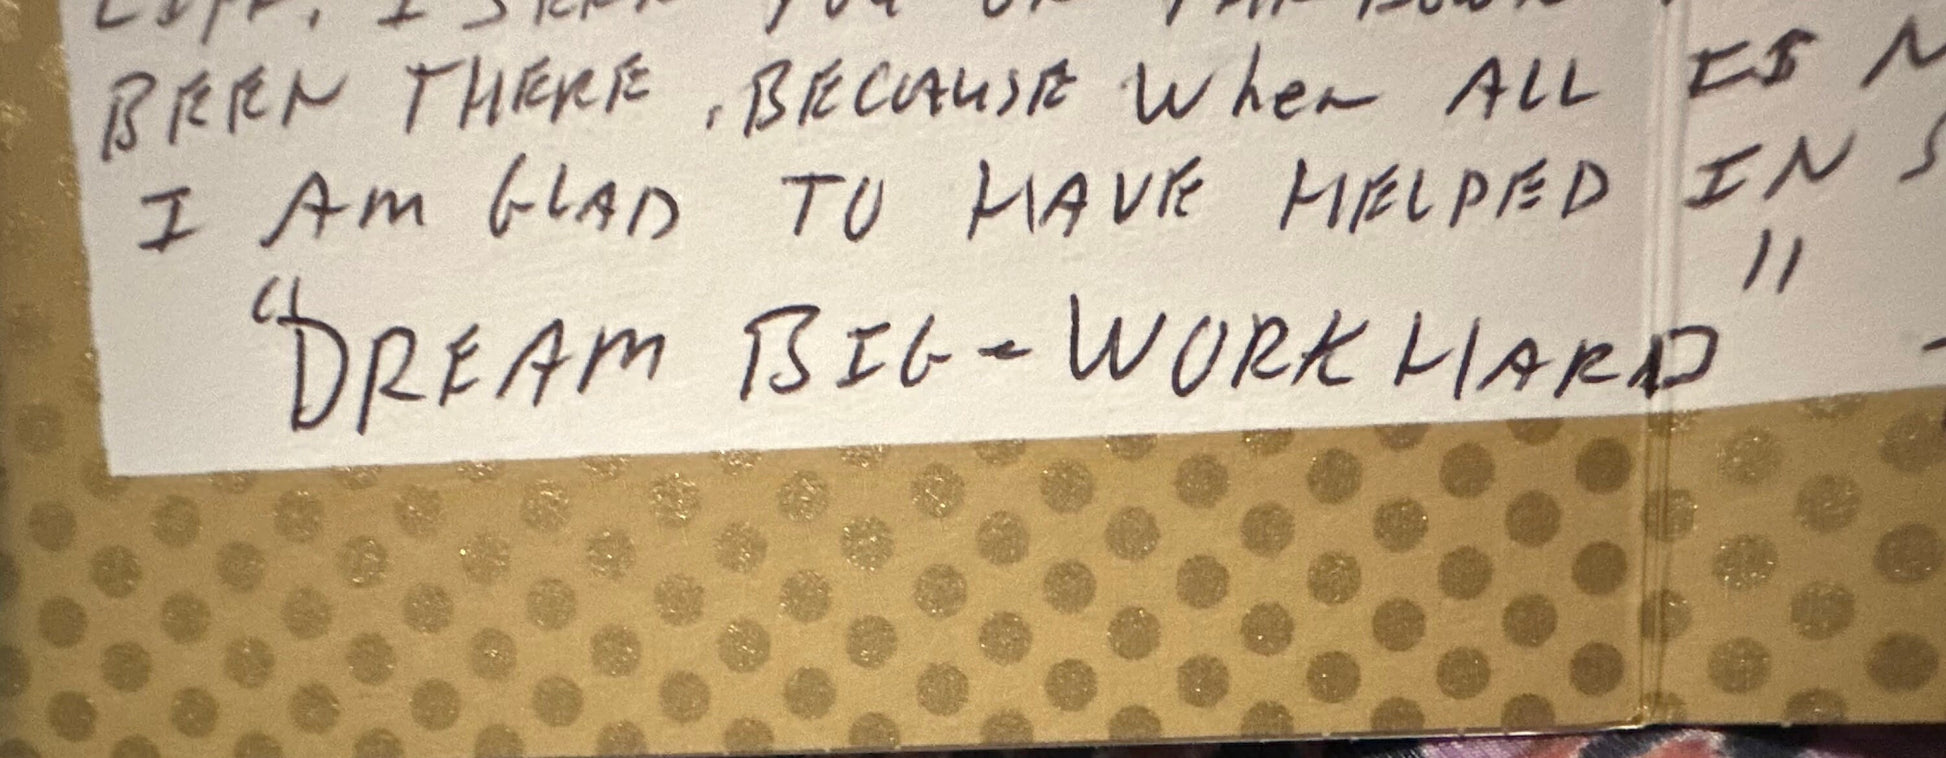 BEEN THERE, BECAUSE When ALL IS
I AM GLAD TO HAVE HELPED IN
"DREAM BIG - WORK HARD"